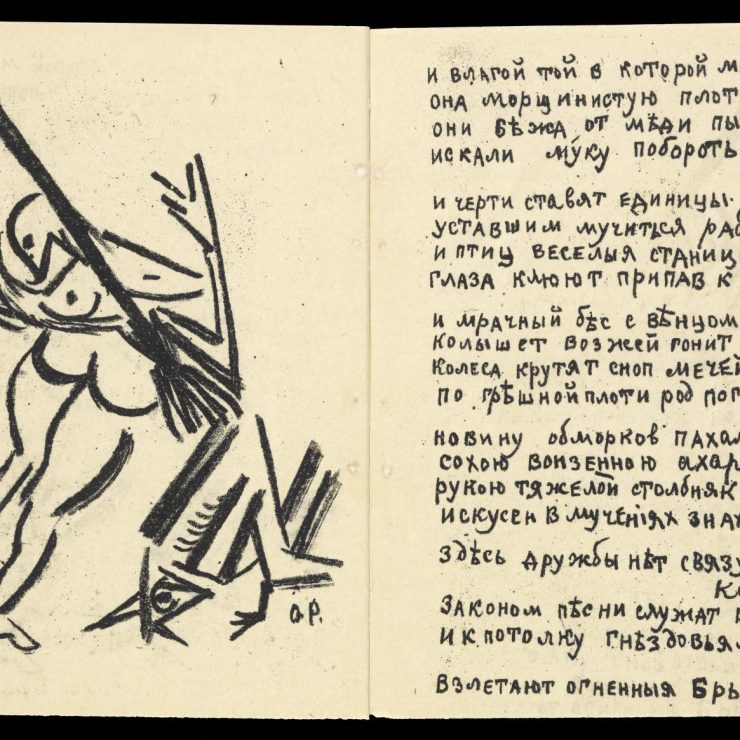 О.Р.
и влагой той в которой м
она морщинистую плот
они бѣжа от мѣди пы
искали му́ку побороть
и черти ставят единицы
уставшим мучиться раб
и птиц веселыя станиц
глаза клюют припав к
и мрачный бѣс с вѣнцом
колышет возжей гонит
колеса крутят сноп мечей
по грѣшной плоти род пог
новину обмороков пахал
сохою вонзенною ахар
рукою тяжелой столбняк
искусен в мученіях зна
здѣсь дружбы нѣт связу
законом пѣсни служат
и к потолку гнѣздовья
взлетают огненныя бры